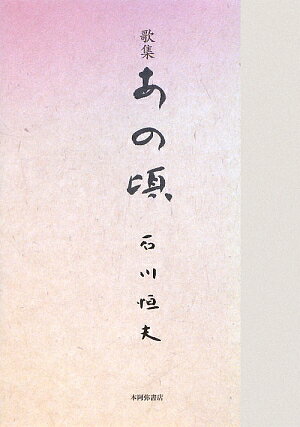 歌集
あの頃
石川恒夫
本阿弥書店